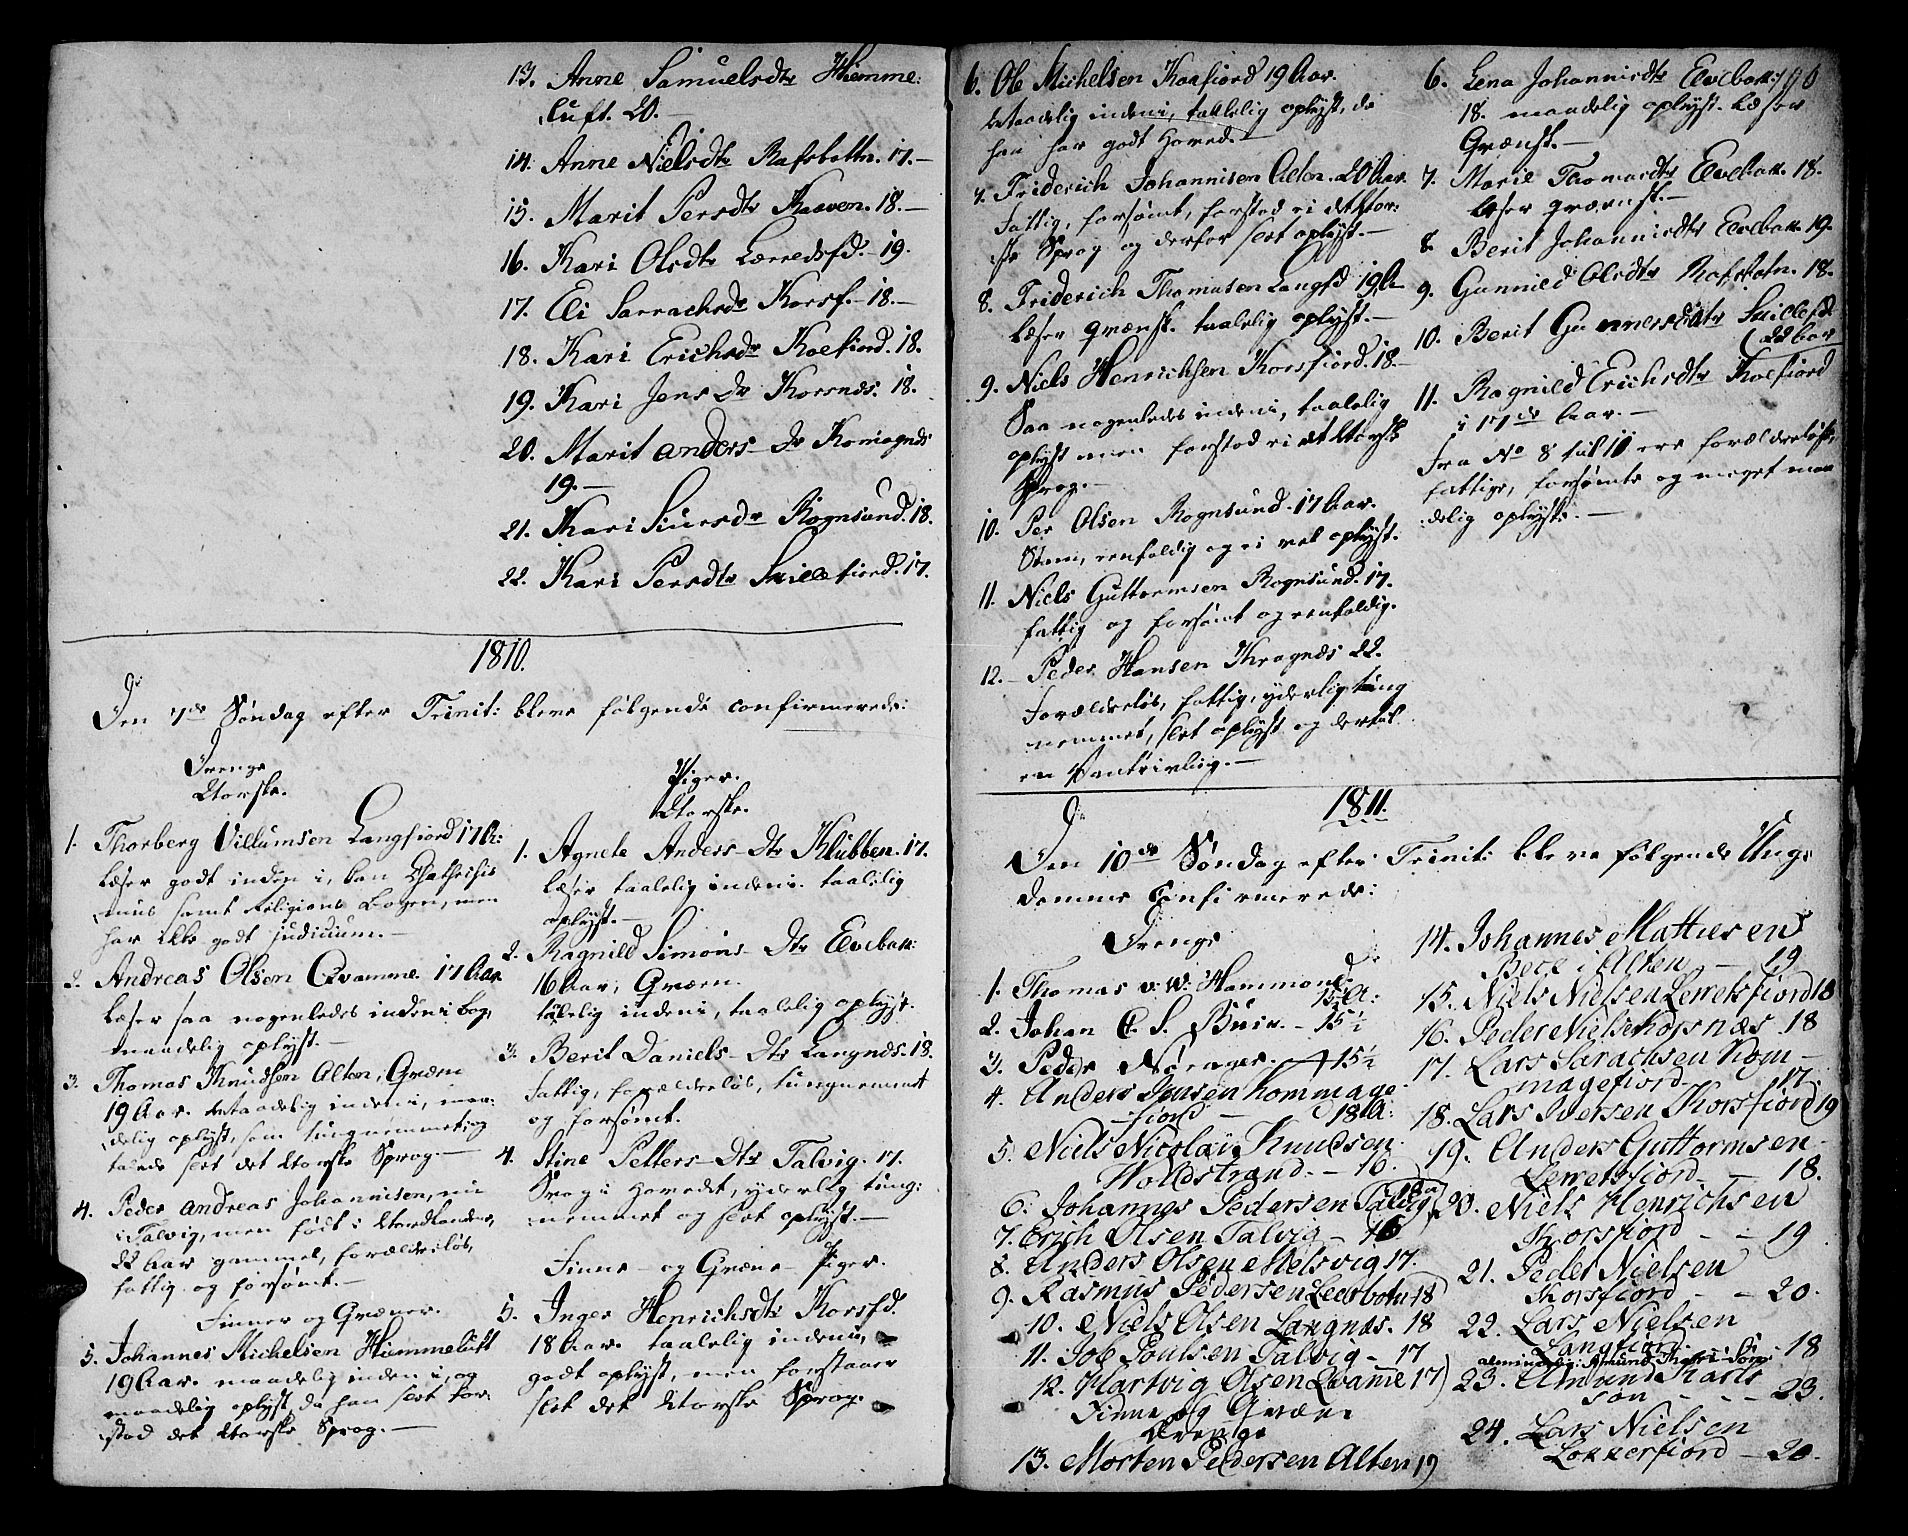 13. Anne Samuelsdtr Hiemme:
luft. 20. —
14. Anne Nielsdtr Rafsbottn. 17. —
15. Marit Persdtr Kaaven. 18. —
16. Kari Olsdtr Lerredsfd. 19.
17. Eli Sarrachsdr Korsf. 18. —
18. Kari Erichsdr Koefiord. 18.
19. Kari Jensdr Korsnæs. 18.
20. Marit Anders-dr Komagnæs
19. —
21. Kari Siursdr Rognsund. 18.
22. Kari Persdtr Smillefiord. 17.
1810.
Den 7de Søndag efter Trinit: bleve følgende confirmerede:
Drenge
Norske.
1. Thorberg Villumsen Langfiord 17 A:
læser godt inden i, kan Cathechis
mus samt Religions Bogen, men
har ikke godt judicium. —
2. Andreas Olsen Qvamme. 17 Aar
læser saa nogenledes indeni Bog,
maadelig oplyst. —
3. Thomas Knudsen Alten, Qvæn
19 Aar. maadelig indeni, maa:
delig oplyst, som tungnemmet og
talede slet det Norske Sprog. —
4. Peder Andreas Johannisen, nu
i Talvig, men født i Nordlandene,
22 Aar gammel, forældreløs,
fattig og forsømt. —
Finner og Qvæner.
5. Johannes Michelsen Hiemmeluft
19 Aar. maadelig inden i, og
maadelig oplyst, da han slet for:
stod det Norske Sprog. —
Piger.
Norske.
1. Agnete Anders-dtr Klubben. 17.
læser taalelig indeni. taalelig
oplyst. —
2. Ragnild Simons-dtr Elvebak:
16 Aar, Qvæn.
taalelig indeni, taalelig oplyst.
3. Berit Daniels-dtr Langnæs. 18.
fattig, forældreløs, tungnemmet
og forsømt.
4. Stine Petters-dtr Talvig. 17.
Svag i Hovedet, yderlig tung:
nemmet og slet oplyst. —
Finne- og Qvæne- Piger.
5. Inger Henrichsdtr Korsfd.
18 Aar. taalelig indeni,
godt oplyst, men forstaaer
slet det Norske Sprog.
6. Ole Michelsen Kaafiord 19 Aar.
maadelig indeni, taalelig oplyst, da
han har godt Hoved. —
7. Friderich Johannisen Alten. 20 Aar.
Fattig, forsømt, forstod ei det Nor:
ske Sprog og derfor slet oplyst. —
8. Friderich Thomasen Langfd 19 A
læser qvænsk. taalelig oplyst. —
9. Niels Henrichsen Korsfiord. 18. —
Saa nogenledes indeni, taalelig
oplyst men forstod ei det Norske
Sprog. —
10. Per Olsen Rognsund. 17 Aar.
Stum, eenfoldig og ei vel oplyst.
11. Niels Guttormsen Rognsund. 17.
fattig og forsømt og eenfoldig.
12. Peder Hansen Kragnæs 22.
Forældreløs, fattig, yderlig tung
nemmet, slet oplyst og dertil
en Vantrivling. —
6. Lena Johannisdtr Elvebak:
18. maadelig oplyst. læser
Qvænsk. —
7. Marie Thomasdtr Elvebak. 18.
læser qvænsk. —
8. Berit Johannisdtr Elvebak. 19.
9. Gunnild Olsdtr Rafsbotn. 18.
10. Berit Gunnersdatr Smillefd.
(22 Aar
11. Ragnild Erichsdtr Koefiord
i 17de Aar. —
Fra No 8 til 10 ere forældreløse,
fattige, forsømte og meget maa
delig oplyste. —
1811.
Den 10de Søndag efter Trinit: bleve følgende Ung:
domme Confirmerede:
Drenge
1. Thomas v. W. Hammond
15½ A:
2. Johan C. S. Buck. - 15½
3. Peder Nørager. 15½
4. Anders Jensen Kommage
fiord — 18 A:
5. Niels Nicolai Knudsen
Woldstrand. - 16.
6. Johannes Pedersen Talvig
7. Erich Olsen Talvig - 16
8. Anders Olsen Melsvig 17.
9. Rasmus Pedersen Leerbotn 18
10. Niels Olsen Langnæs. 18
11. Job Poulsen Talvig - 17
12. Hartvig Olsen Qvame 17
Finne og Qvæne
Drenge
13. Morten Pedersen Alten 19
14. Johannes Mattiesen
Beck i Alten — 19
15. Niels Nielsen Lerretsfiord 18
16. Peder Nielsen Korsnæs - 18
17. Lars Sarachsen Kom-
magefiord. - 17.
18. Lars Iversen Korsfiord 19
19. Anders Guttormsen
Lerretsfiord. — 18.
20. Niels Henrichsen
Korsfiord - - 19
21. Peder Nielsen
Korsfiord - - 20.
22. Lars Nielsen
Langfiord - 18
23. Amund Karis
søn - - - 23.
24. Lars Nielsen
Lokkerfiord - 20.